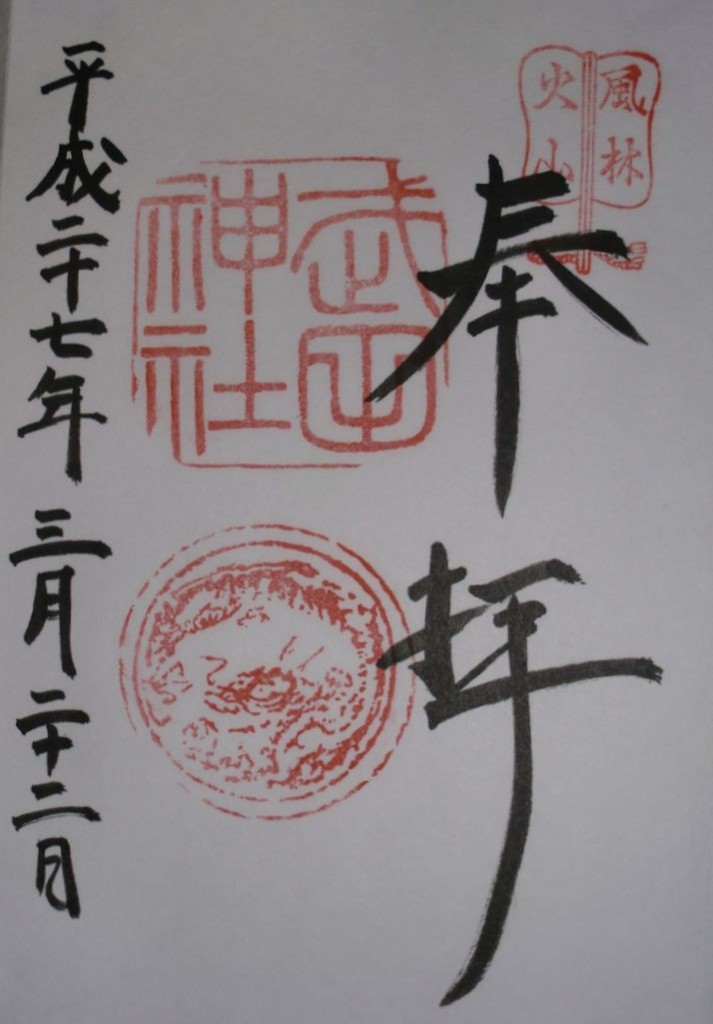 風林
火山
奉拝
武田
神社
平成二十七年三月二十二日